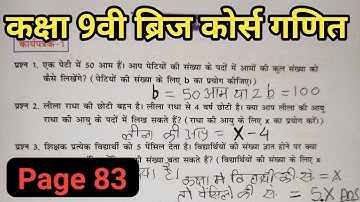 कक्षा 9वी ब्रिज कोर्स गणित
कार्यपत्रक-1
प्रश्न 1. एक पेटी में 50 आम हैं। आप पेटियों की संख्या के पदों में आमों की कुल संख्या को
कैसे लिखेंगे? ( पेटियों की संख्या के लिए b का प्रयोग कीजिए।)
b = 50 आम या 2b = 100
प्रश्न 2. लीला राधा की छोटी बहन है। लीला राधा से 4 वर्ष छोटी है। क्या आप लीला की आयु
राधा की आयु के पदों में लिख सकते हैं? ( राधा की आयु के लिए x का प्रयोग करें।)
लीला की आयु = x-4
प्रश्न 3. शिक्षक प्रत्येक विद्यार्थी को 5 पेंसिल देता है। विद्यार्थियों की संख्या ज्ञात होने पर क्या
की संख्या बता सकते हैं? ( विद्यार्थियों की
Page 83
कक्षा में की सं = x
तो पेंसिलों की सं = 5x Ans